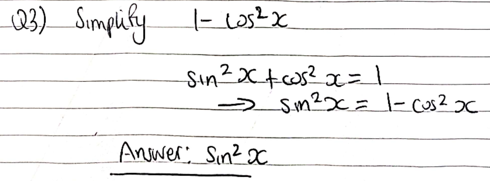 Q3) Simplify 1 - cos²x
sin²x + cos²x = 1
→ sin²x = 1 - cos²x
Answer: sin²x